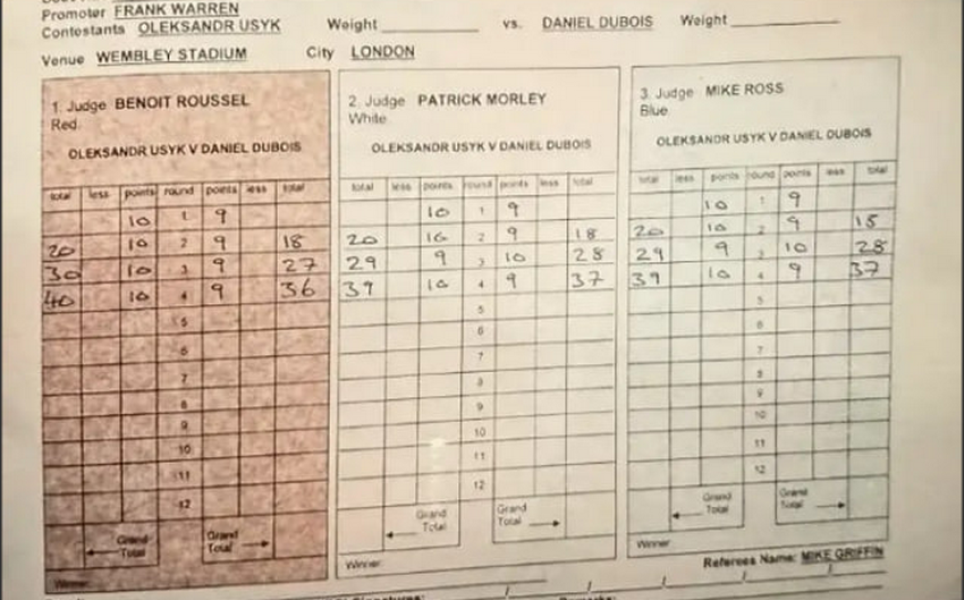 Promoter FRANK WARREN
Contestants OLEKSANDR USYK Weight vs. DANIEL DUBOIS Weight
Venue WEMBLEY STADIUM City LONDON
1. Judge BENOIT ROUSSEL
Red
OLEKSANDR USYK V DANIEL DUBOIS
total less points round points less total
10 1 9
20 10 2 9 18
30 10 3 9 27
40 10 4 9 36
5
6
7
8
9
10
11
12
Grand Total Grand Total
Winner
2. Judge PATRICK MORLEY
White
OLEKSANDR USYK V DANIEL DUBOIS
total less points round points less total
10 1 9
20 10 2 9 18
29 9 3 10 28
39 10 4 9 37
5
6
7
8
9
10
11
12
Grand Total Grand Total
Winner
3. Judge MIKE ROSS
Blue
OLEKSANDR USYK V DANIEL DUBOIS
total less points round points less total
10 1 9
20 10 2 9 18
29 9 3 10 28
39 10 4 9 37
5
6
7
8
9
10
11
12
Grand Total Grand Total
Winner
Referees Name: MIKE GRIFFIN